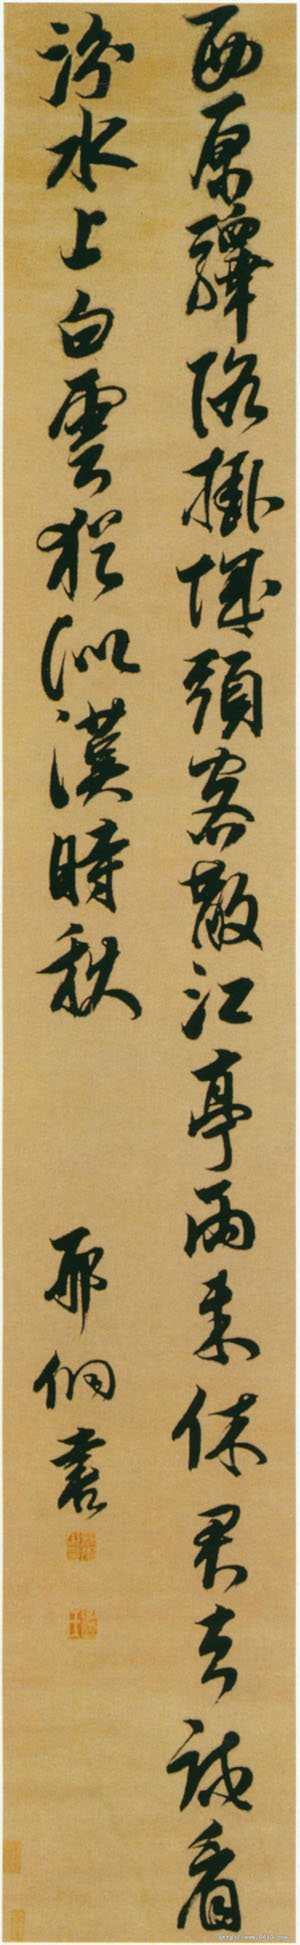 西原驛路掛城頭客散江亭雨未休君去試看
汾水上白雲猶似漢時秋
邢侗書
http://www.9610.com